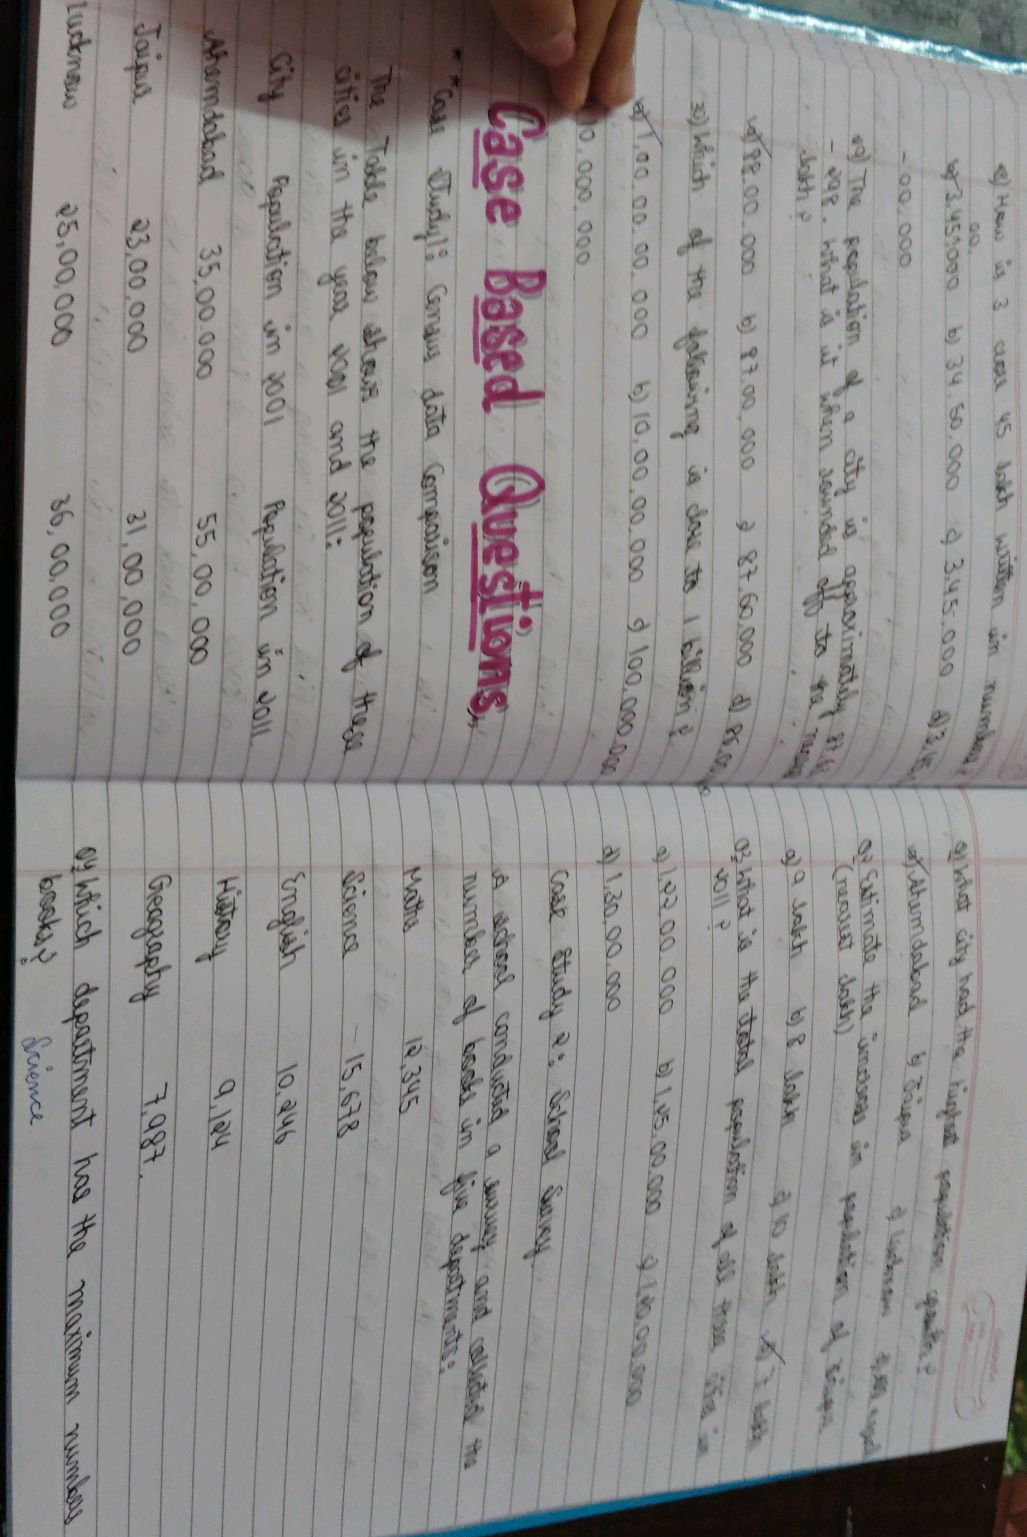 28) How is 3 crore 45 lakh written in number?
a) 3.45.000 b) 34.50.000 c) 3.45.000 d) 3.45
-00.000
29) The population of a city is approximately 87.6
- 298. what is it when rounded off to the nearest
lakh?
a) 88.00.000 b) 87.00.000 c) 87.60.000 d) 85.00
30) Which of the following is close to 1 billion?
a) 1.00.00.00.000 b) 10.00.00.00.000 c) 100.000.000
000.000
Case Based Questions
** Case Study 1: Census data Comparison
The Table below shows the population of these
cities in the year 2001 and 2011:
City Population in 2001 Population in 2011
Ahemdabad 35,00.000 55,00,000
Jaipur 23,00,000 31,00,000
Lucknow 25,00,000 36,00,000
Q1 What city had the highest population growth?
a) Ahemdabad b) Jaipur c) Lucknow d) All equal
Q2 Estimate the increase in population of Jaipur.
(nearest lakh)
a) 9 lakh b) 8 lakh c) 10 lakh d) 7 lakh
Q3 What is the total population of all three cities in
2011?
a) 1.22.00.000 b) 1.25.00.000 c) 1.20.00.000
d) 1.30.00.000
Case Study 2: School Survey
A school conducted a survey and collected the
number of books in five departments:
Maths 12,345
Science - 15,678
English 10,246
History 9,124
Geography 7,987.
Q1 Which department has the maximum number
books? Science.